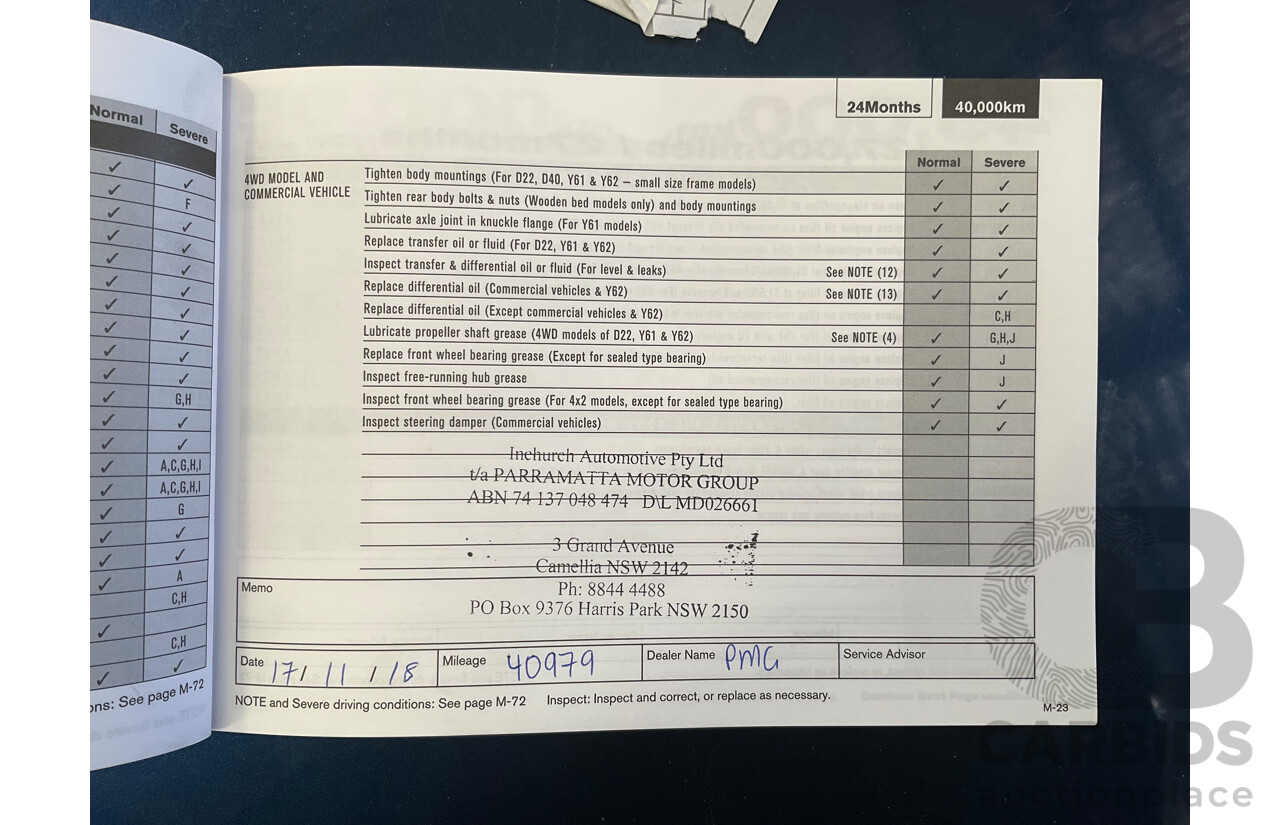 Normal Severe
F
G,H
A,C,G,H,I
A,C,G,H,I
G
A
C,H
C,H
ons: See page M-72
24Months 40,000km
Normal Severe
4WD MODEL AND
COMMERCIAL VEHICLE
Tighten body mountings (For D22, D40, Y61 & Y62 – small size frame models) ✓ ✓
Tighten rear body bolts & nuts (Wooden bed models only) and body mountings ✓ ✓
Lubricate axle joint in knuckle flange (For Y61 models) ✓ ✓
Replace transfer oil or fluid (For D22, Y61 & Y62) ✓ ✓
Inspect transfer & differential oil or fluid (For level & leaks) See NOTE (12) ✓ ✓
Replace differential oil (Commercial vehicles & Y62) See NOTE (13) ✓ ✓
Replace differential oil (Except commercial vehicles & Y62) C,H
Lubricate propeller shaft grease (4WD models of D22, Y61 & Y62) See NOTE (4) ✓ G,H,J
Replace front wheel bearing grease (Except for sealed type bearing) ✓ J
Inspect free-running hub grease ✓ J
Inspect front wheel bearing grease (For 4x2 models, except for sealed type bearing) ✓ ✓
Inspect steering damper (Commercial vehicles) ✓ ✓
Inchurch Automotive Pty Ltd
t/a PARRAMATTA MOTOR GROUP
ABN 74 137 048 474 D\L MD026661
3 Grand Avenue
Camellia NSW 2142
Ph: 8844 4488
PO Box 9376 Harris Park NSW 2150
Memo
Date 17/11/18 Mileage 40979 Dealer Name PMG Service Advisor
NOTE and Severe driving conditions: See page M-72 Inspect: Inspect and correct, or replace as necessary.
M-23
CARBIDS
auctionplace